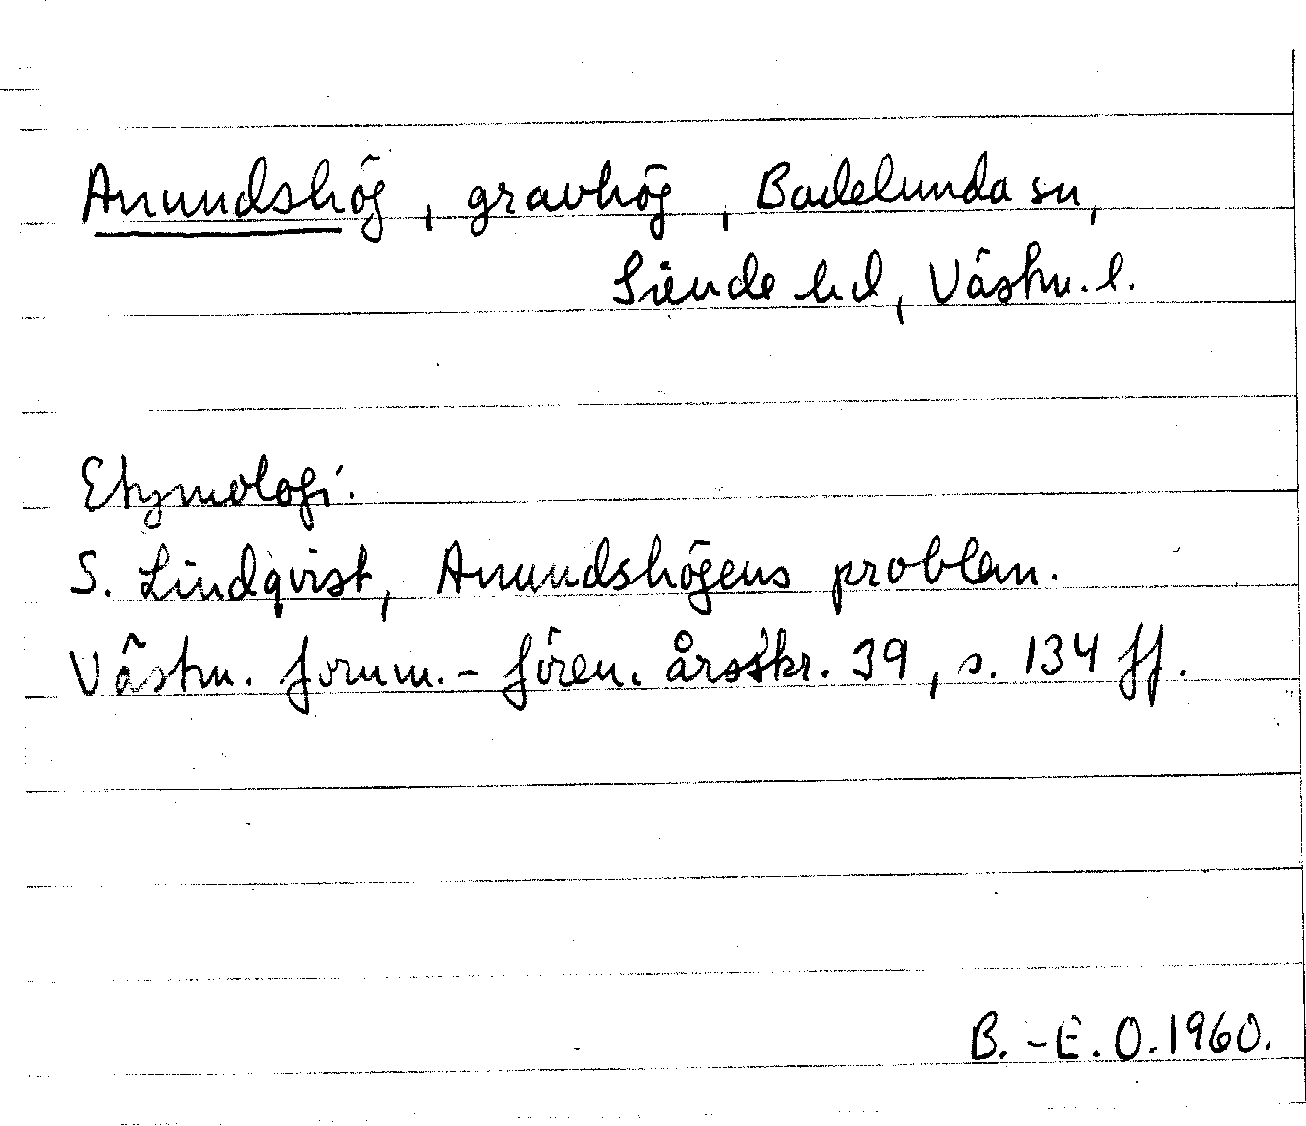 Anundshög, gravhög, Badelunda sn,
Siende hd, Västm. l.
Etymologi.
S. Lindqvist, Anundshögens problem.
Västm. fornm.-fören. årsskr. 39, s. 134 ff.
B.-E. O. 1960.